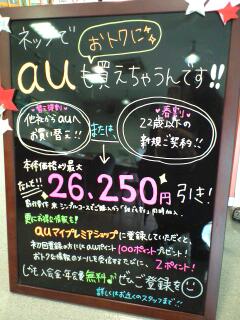 ネットで
おトクに
auも買えちゃうんです!!
他社からauへ
お買い替え!!
または
春割
22歳以下の
新規ご契約!!
本体価格の最大
なんと!!
26,250円引き!
更にお得な情報も!
auマイプレミアショップに登録していただくと、
初回登録の方にauポイント100ポイントプレゼント!
おトクな情報のメールを受信するたびに、2ポイント!
しかも入会金・年会費無料♪ぜひご登録を
詳しくはお近くのスタッフまで!!